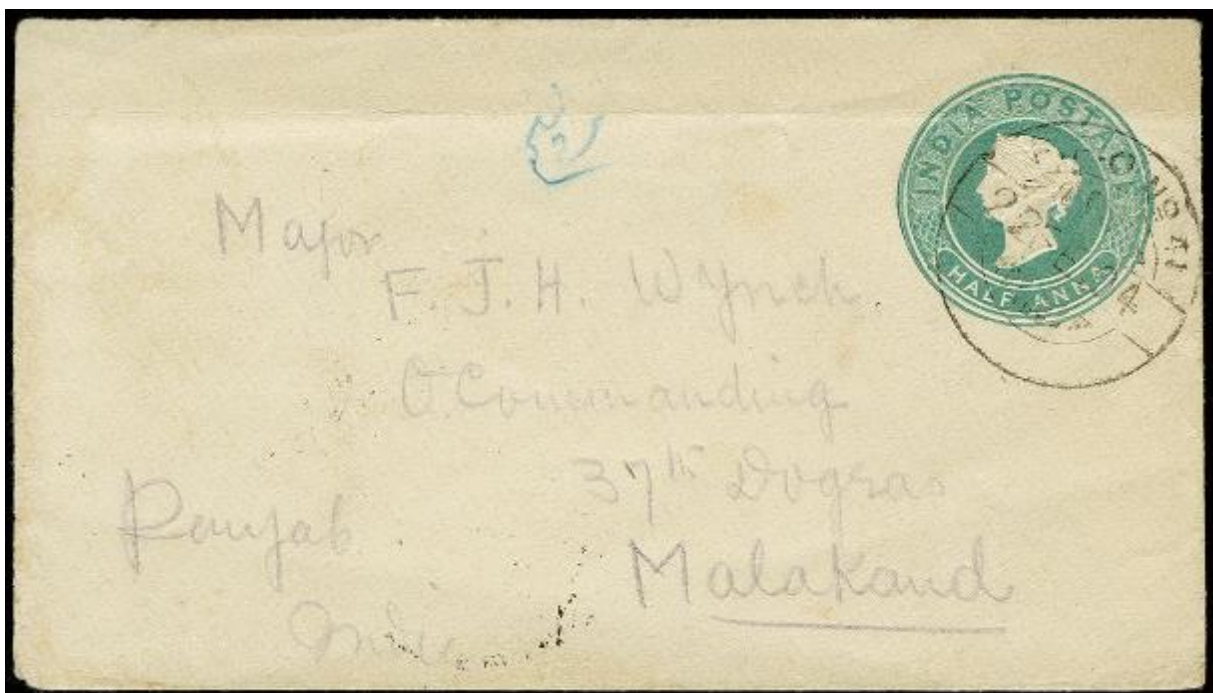 INDIA POSTAGE
HALF ANNA
Major
F. J. H. Wynch
O. Commanding
37th Dogras
Malakand
Punjab
India